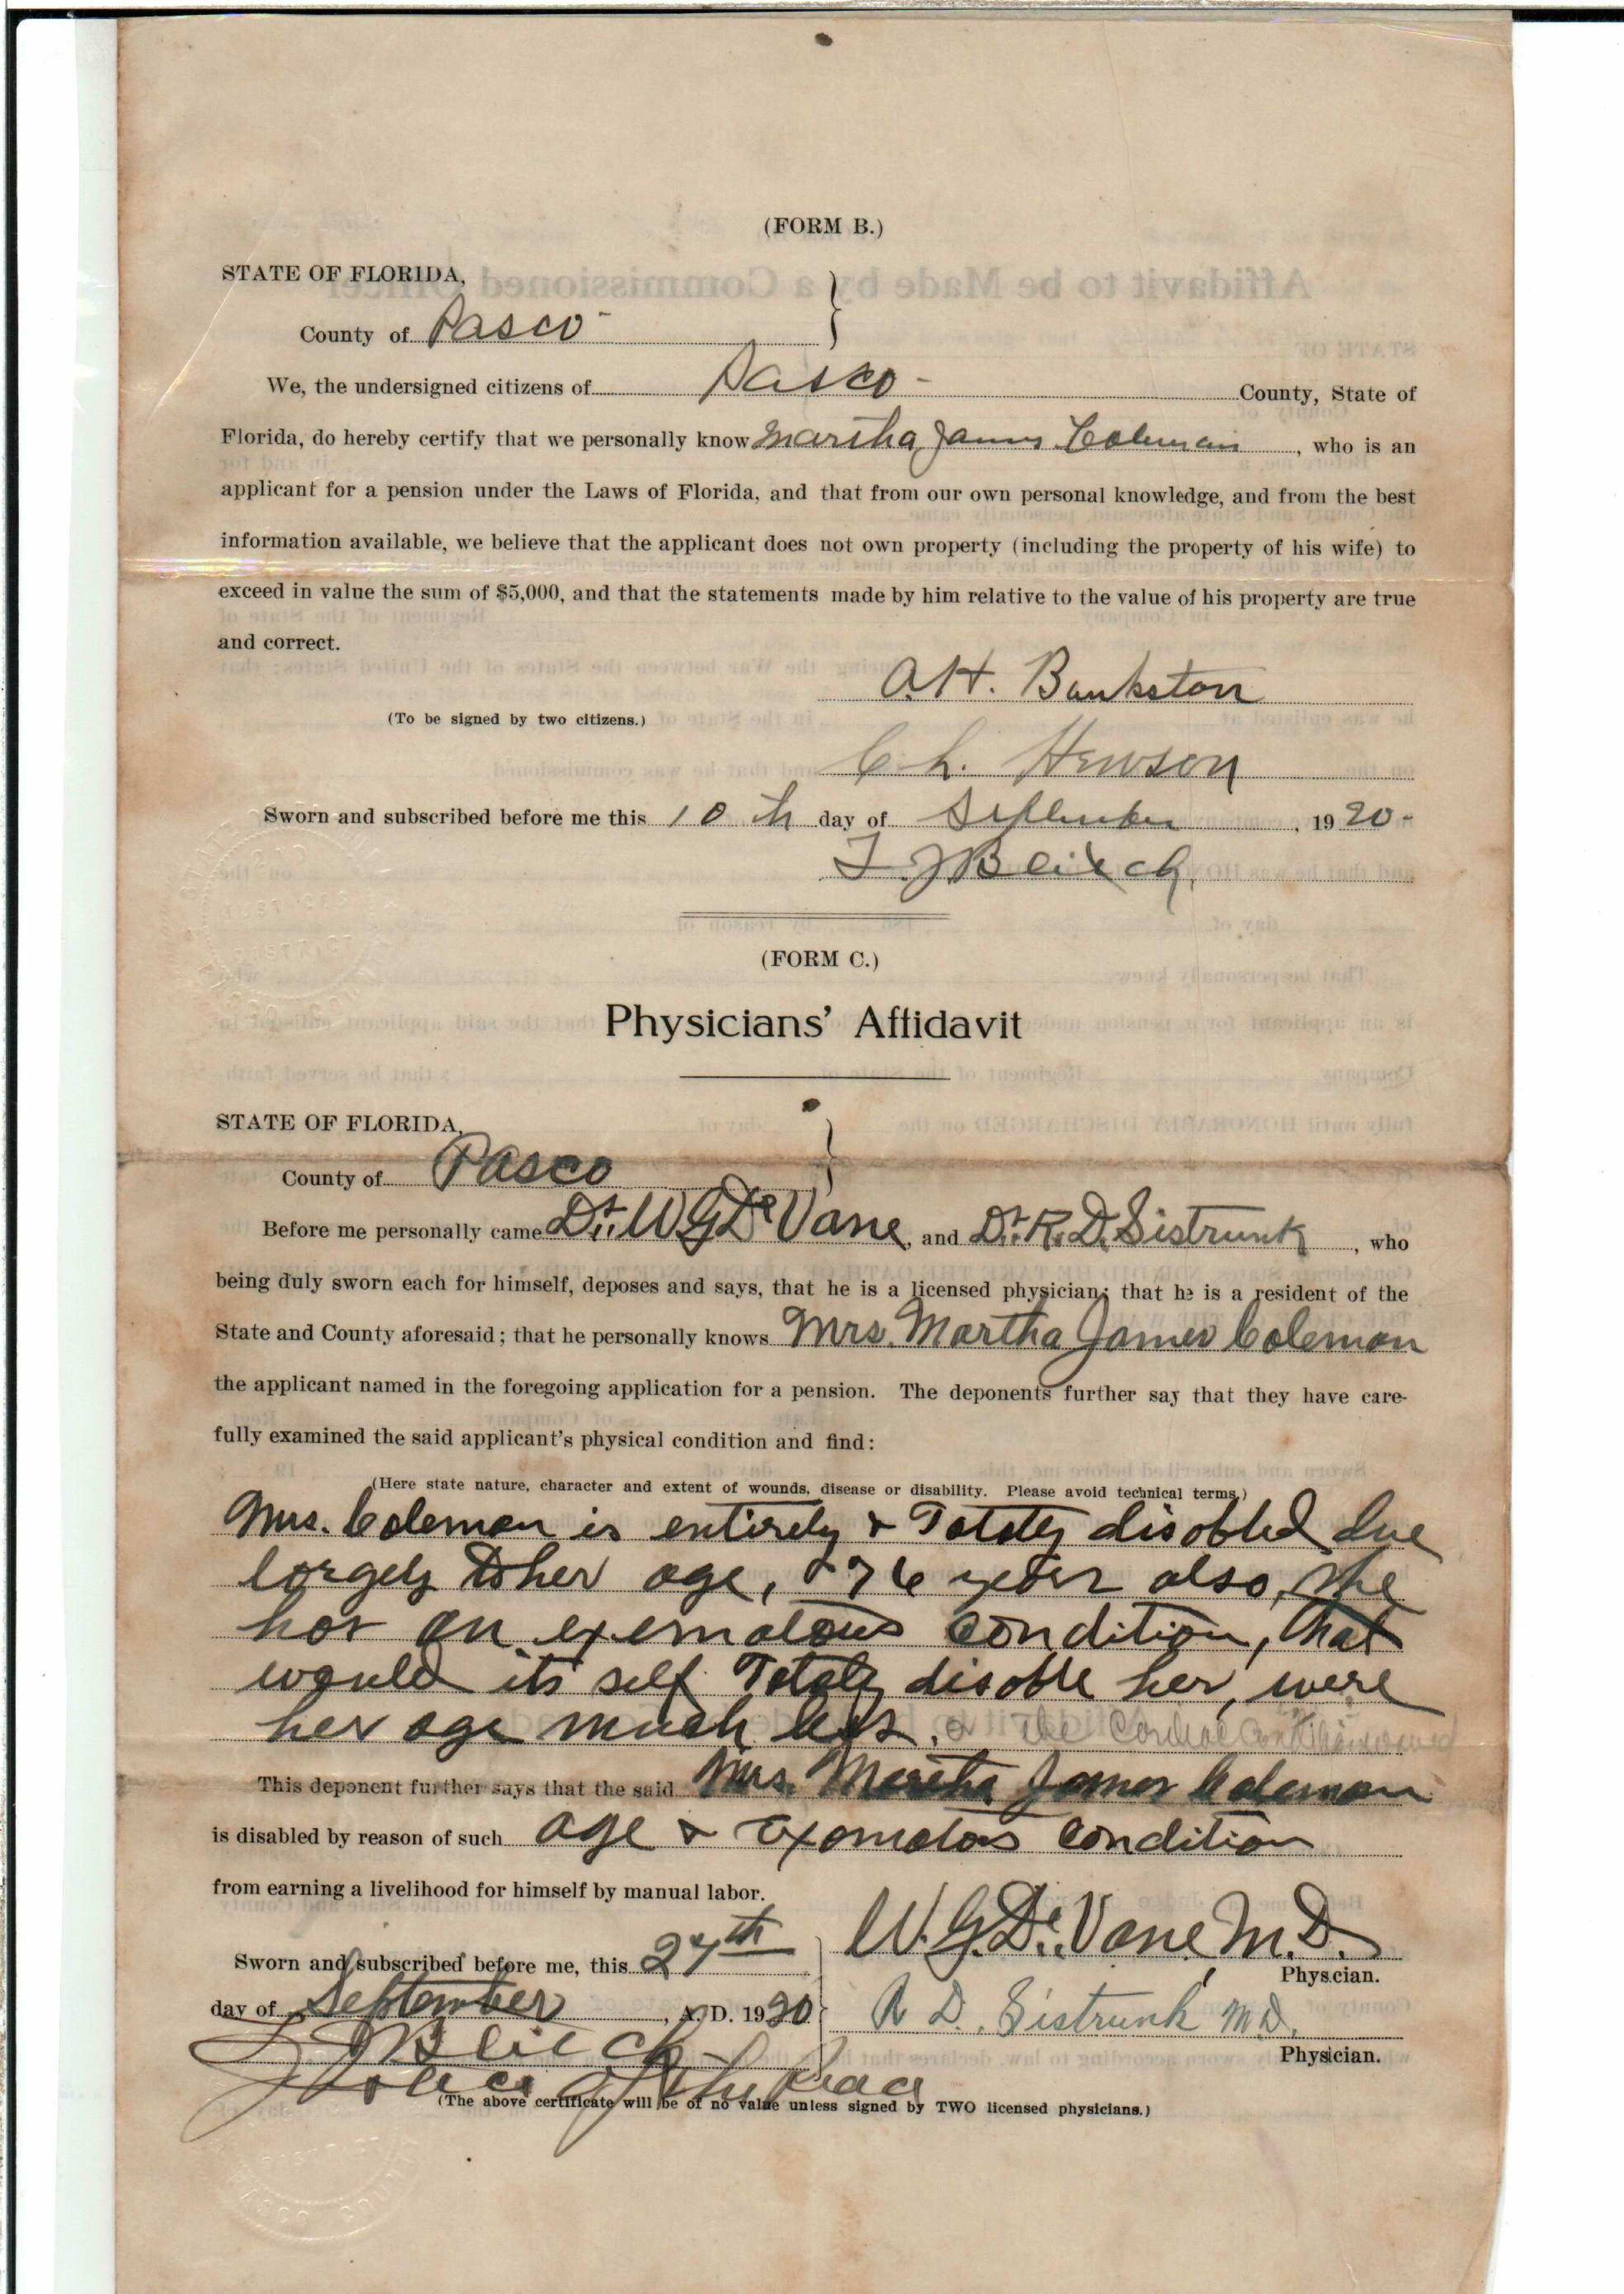 (FORM B.)
STATE OF FLORIDA,
County of Pasco
We, the undersigned citizens of Pasco County, State of
Florida, do hereby certify that we personally know Martha James Coleman, who is an
applicant for a pension under the Laws of Florida, and that from our own personal knowledge, and from the best
information available, we believe that the applicant does not own property (including the property of his wife) to
exceed in value the sum of $5,000, and that the statements made by him relative to the value of his property are true
and correct.
A.H. Bankston
(To be signed by two citizens.)
C L. Hewson
Sworn and subscribed before me this 10 th day of September, 1920-
(FORM C.)
Physicians' Affidavit
STATE OF FLORIDA,
County of Pasco
Before me personally came Dr. W G De Vane, and Dr. R. D. Sistrunk, who
being duly sworn each for himself, deposes and says, that he is a licensed physician; that he is a resident of the
State and County aforesaid; that he personally knows Mrs. Martha James Coleman
the applicant named in the foregoing application for a pension. The deponents further say that they have care-
fully examined the said applicant's physical condition and find:
(Here state nature, character and extent of wounds, disease or disability. Please avoid technical terms.)
Mrs. Coleman is entirely & Totaly disabled due
largely to her age, 76 years also, she
has an exematous condition, that
would its self Totaly disable her, were
her age much less. & The
This deponent further says that the said Mrs. Martha James Coleman
is disabled by reason of such age & Exematous condition
from earning a livelihood for himself by manual labor.
W. G. De. Vane M.D.
Sworn and subscribed before me, this 24th
Physician.
day of September, A. D. 1920
R D. Sistrunk M.D.
Physician.
Justice of the Peace
(The above certificate will be of no value unless signed by TWO licensed physicians.)